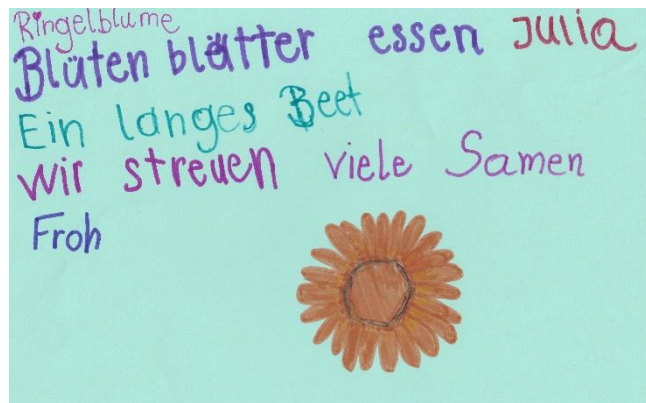 Ringelblume
Blüten blätter essen Julia
Ein langes Beet
Wir streuen viele Samen
Froh